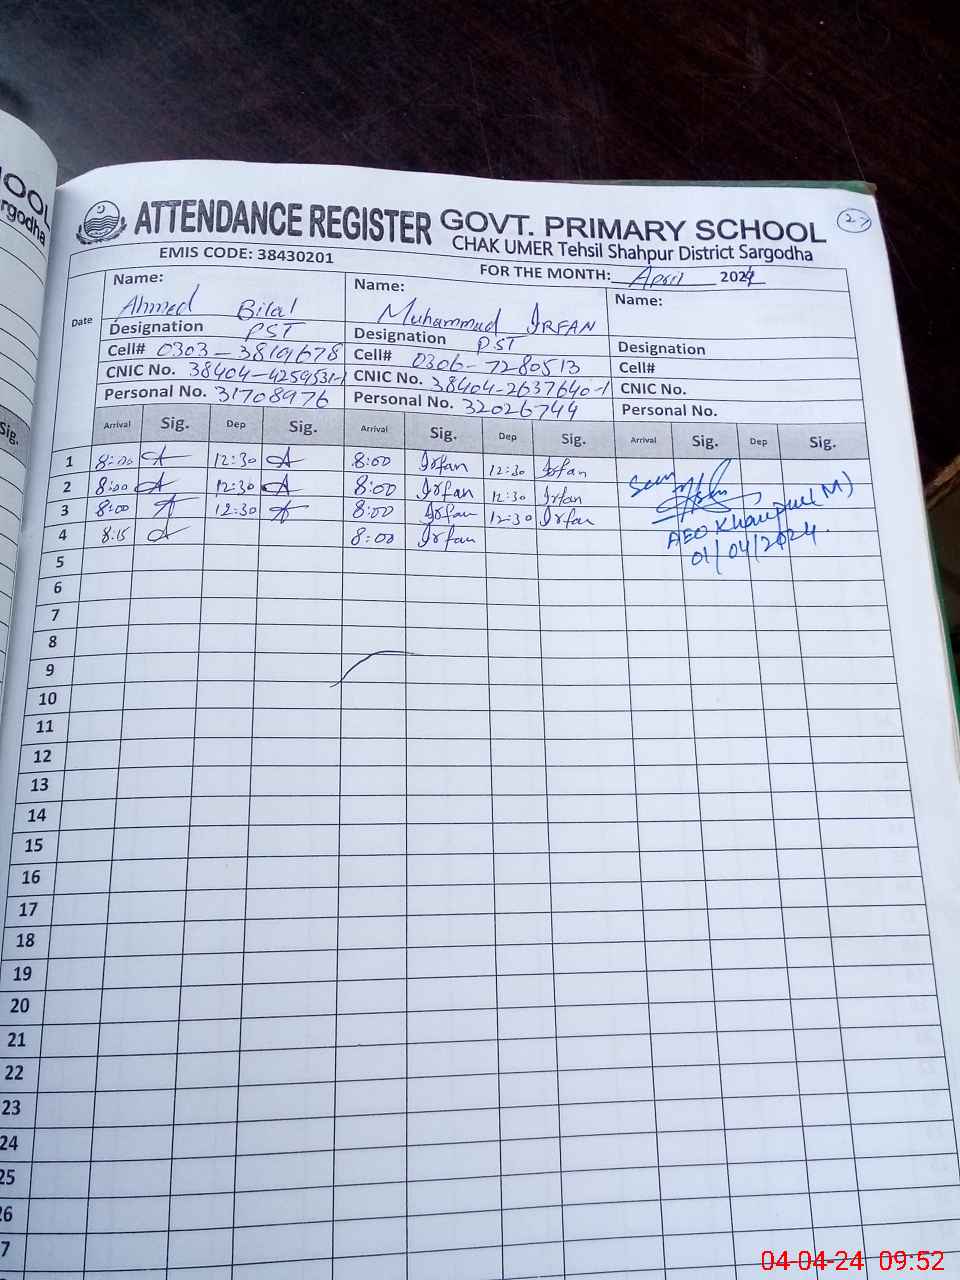 OOL
rgodha
Sig.
ATTENDANCE REGISTER GOVT. PRIMARY SCHOOL
27
CHAK UMER Tehsil Shahpur District Sargodha
EMIS CODE: 38430201
FOR THE MONTH: April 2024
Date
Name: Ahmed Bilal
Designation PST
Cell# 0303-38191678
CNIC No. 38404-4259531-1
Personal No. 31708976
Name: Muhammad IRFAN
Designation PST
Cell# 0306-7280513
CNIC No. 38404-2637640-1
Personal No. 32026744
Name:
Designation
Cell#
CNIC No.
Personal No.
Arrival Sig. Dep Sig. Arrival Sig. Dep Sig. Arrival Sig. Dep Sig.
1 8:00 A 12:30 A 8:00 Irfan 12:30 Irfan
2 8:00 A 12:30 A 8:00 Irfan 12:30 Irfan
3 8:00 A 12:30 A 8:00 Irfan 12:30 Irfan
4 8:15 A 8:00 Irfan
Seen
AEO Khanpur (M)
01/04/2024.
5
6
7
8
9
10
11
12
13
14
15
16
17
18
19
20
21
22
23
24
25
26
7
04-04-24 09:52